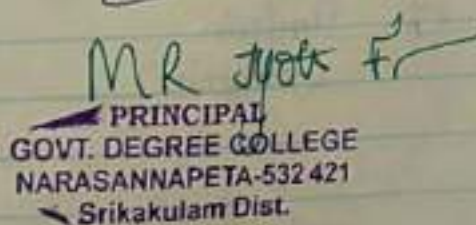 MR Jyoti
PRINCIPAL
GOVT. DEGREE COLLEGE
NARASANNAPETA-532 421
Srikakulam Dist.